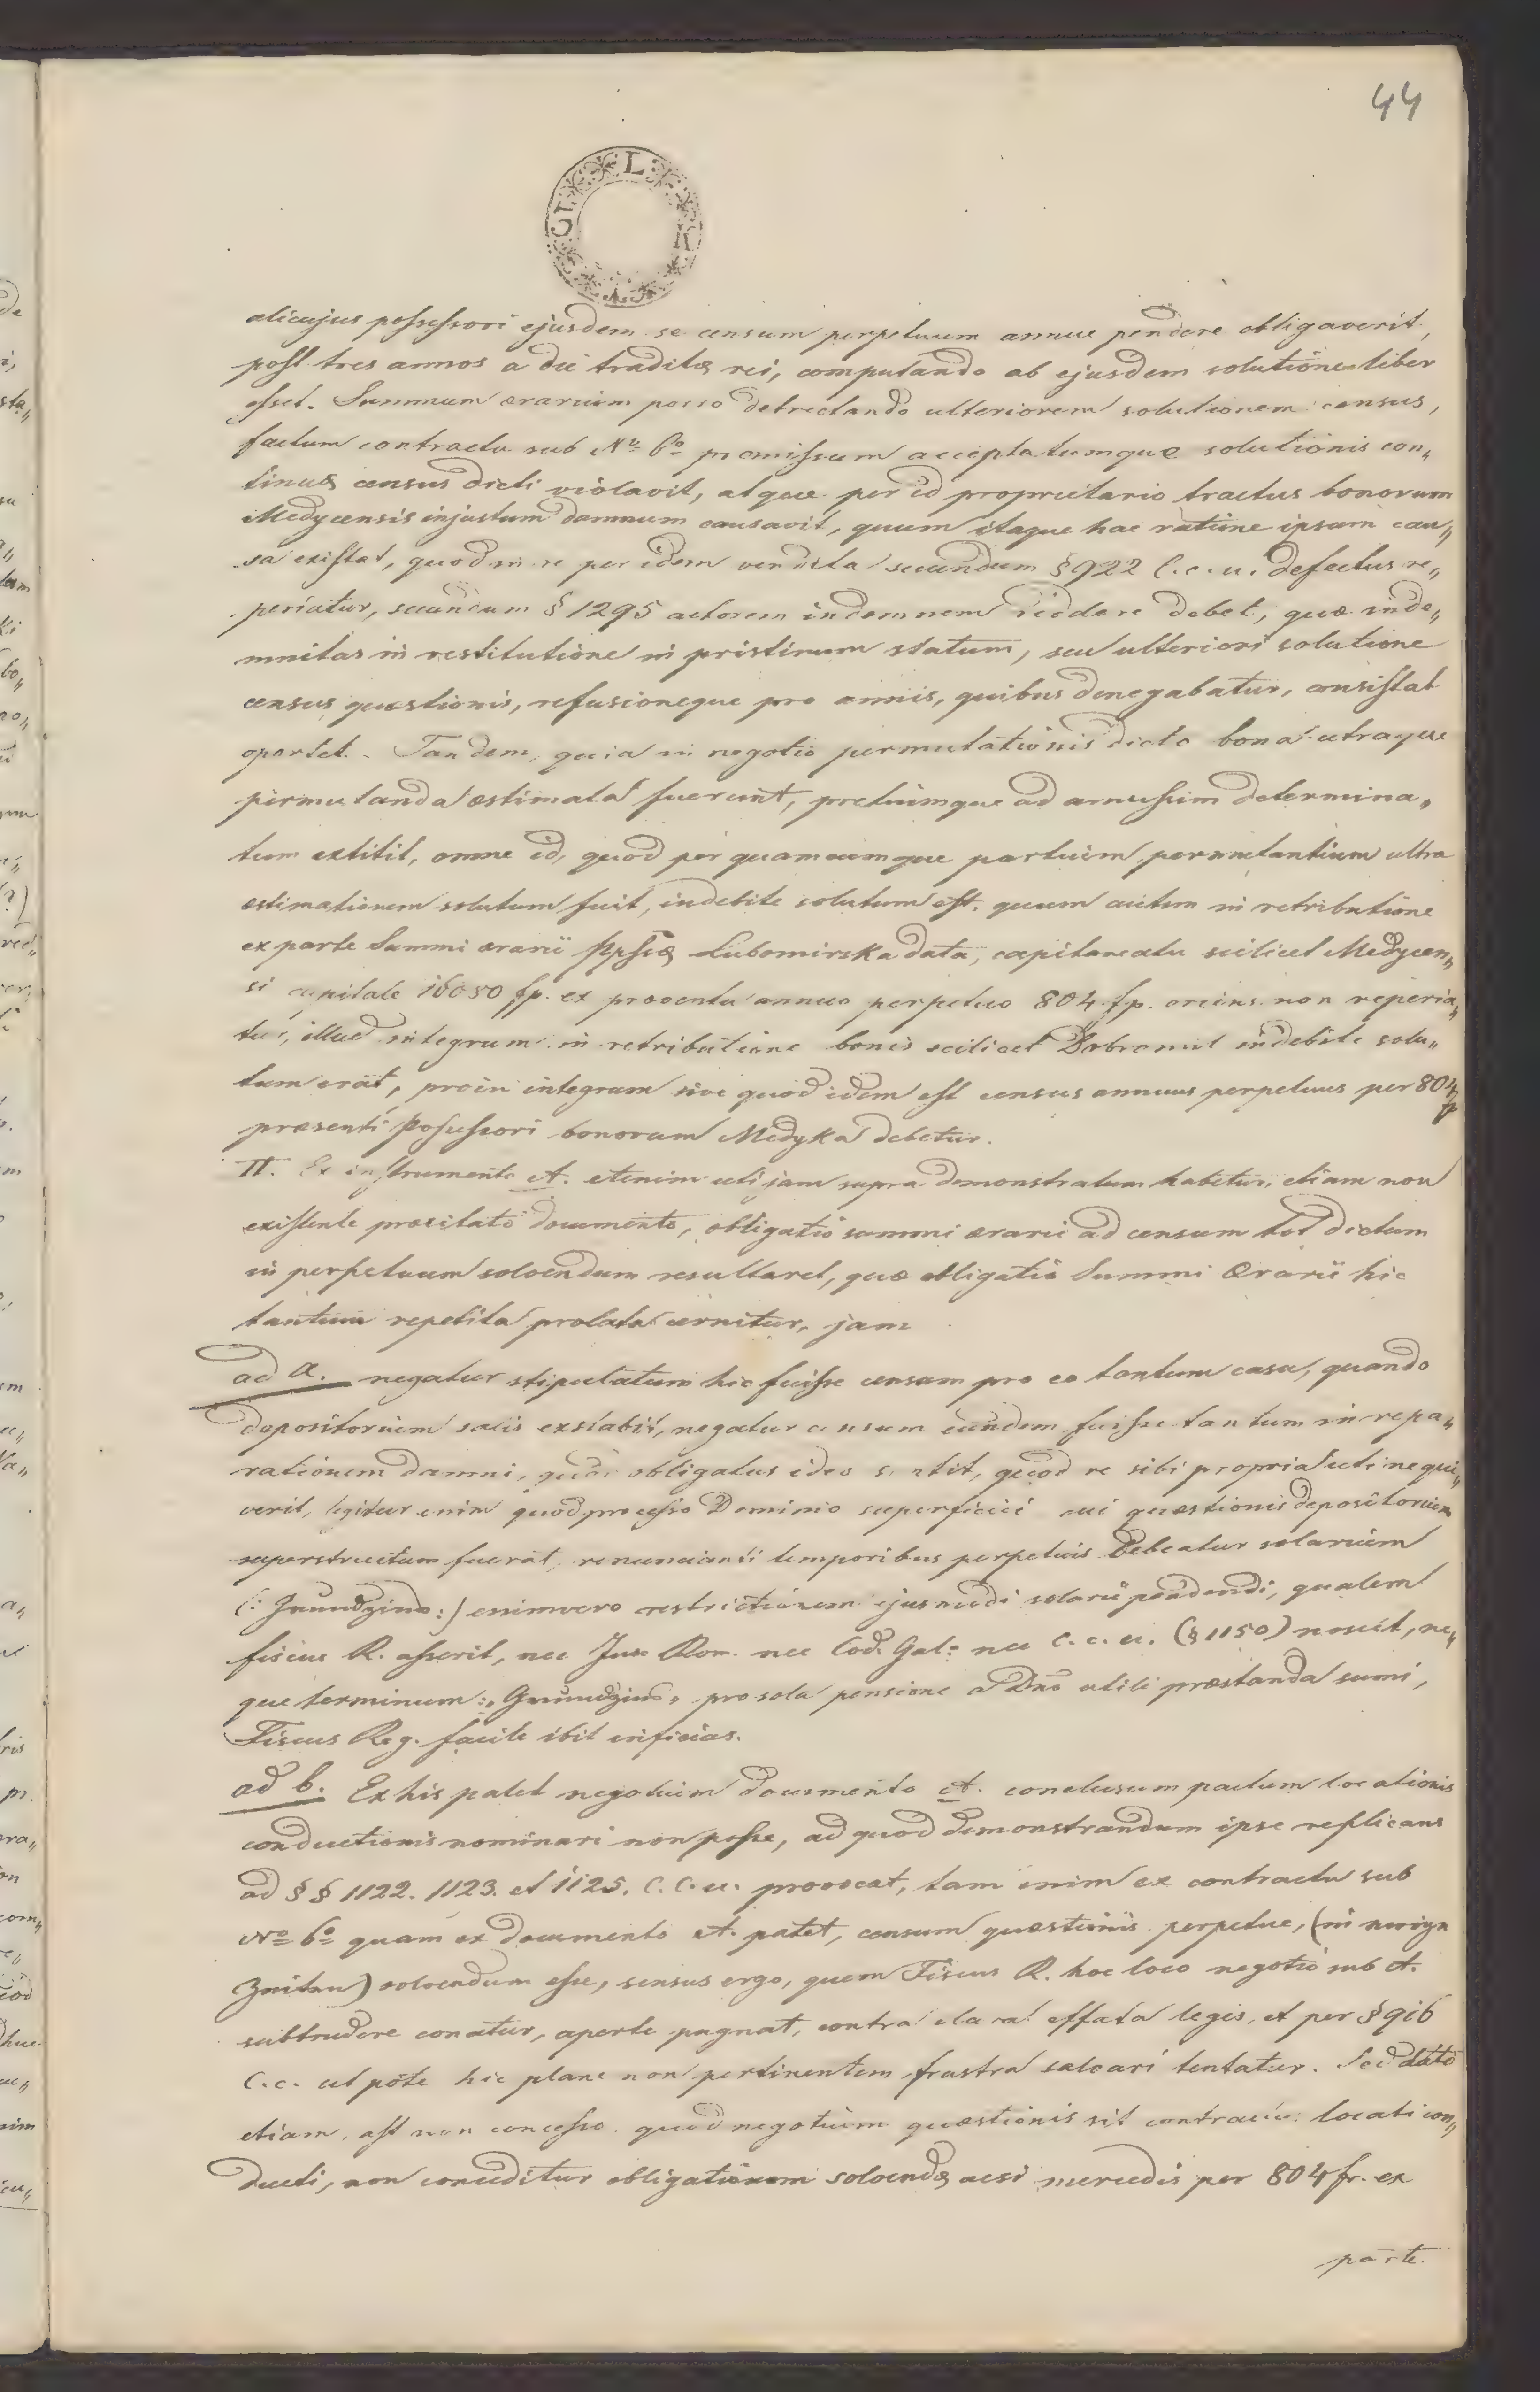 44
alicujus possessori ejusdem se censum perpetuum annue pendere obligaverit,
post tres annos a die traditæ rei, computando ab ejusdem solutione liber
esset. Summum ærarium porro detrectando ulteriorem solutionem census,
factum contractu sub Nº 6º promissum acceptatumque solutionis con„
tinuæ census dicti violavit, atque per id proprietario tractus bonorum
Medycensis injustum damnum causavit, quum itaque hac ratione ipsum cau„
sa existat, quod in re per idem vendita secundum § 922 C. c. u. defectus re„
periatur, secundum § 1295 actorem indemnem reddere debet, quæ inde„
mnitas in restitutione in pristinum statum, seu ulteriori solutione
census quæstionis, refusioneque pro annis, quibus denegabatur, consistat
oportet. - Tandem, quia in negotio permutationis dicto bona utraque
permutanda æstimata fuerunt, pretiumque ad amussim determina„
tum extitit, omne id, quod per quamcumque partium permutantium ultra
æstimationem solutum fuit, indebite solutum est. quum autem in retributione
ex parte Summi ærarii Ppssæ Lubomirska data, capitaneatu scilicet Medycen„
si capitale 16080 fp. ex proventu annuo perpetuo 804 fp. oriens non reperia„
tur, illud integrum in retributione bonis scilicet Dobromil indebite solu„
tum erat, proin integrum sive quod idem est census annuus perpetuus per 804 fp
præsenti Possessori bonorum Medyka debetur.
II. Ex instrumento A. etenim uti jam supra demonstratum habetur, etiam non
existente præcitato documento, obligatio summi ærarii ad censum tot dictum
in perpetuum solvendum resultaret, quæ obligatio Summi Ærarii hic
tantum repetita prolata cernitur, jam
ad a. negatur stipulatum hic fuisse censum pro eo tantum casu, quando
depositorium salis exstabit, negatur censum eundem fuisse tantum in repa„
rationem damni, quod obligatus ideo sentit, quod re sibi propria uti nequi„
verit, legitur enim quod processo Dominio superficiei cui quæstionis depositorium
superstructum fuerat, renuncianti temporibus perpetuis debeatur solarium
(: Grundzins :) enimvero restrictionem ejusmodi solarii pendendi, qualem
fiscus R. asserit, nec Jus Rom. nec Cod. Gal: nec C. c. u. (§ 1150) noscit, ne„
que terminum: „Grundzins„ pro sola pensione a Dno utili præstanda sumi,
Fiscus Reg. facile ibit inficias.
ad b. Ex his patet negotium documento A. conclusum pactum locationis
conductionis nominari non posse, ad quod demonstrandum ipse replicans
ad § § 1122. 1123. et 1125. C. C. u. provocat, tam enim ex contractu sub
Nº 6º quam ex documento A. patet, censum quæstionis perpetue, (in ewigen
Zeiten) solvendum esse, sensus ergo, quem Fiscus R. hoc loco negotio sub A.
subtrudere conatur, aperte pugnat, contra clara effata legis, et per § 916
C. c. utpote hic plane non pertinentem frustra salvari tentatur. Sed dato
etiam, ast non concesso quod negotium quæstionis sit contractus locati con„
ducti, non conceditur obligationem solvendæ acsi mercedis per 804 fr. ex
parte